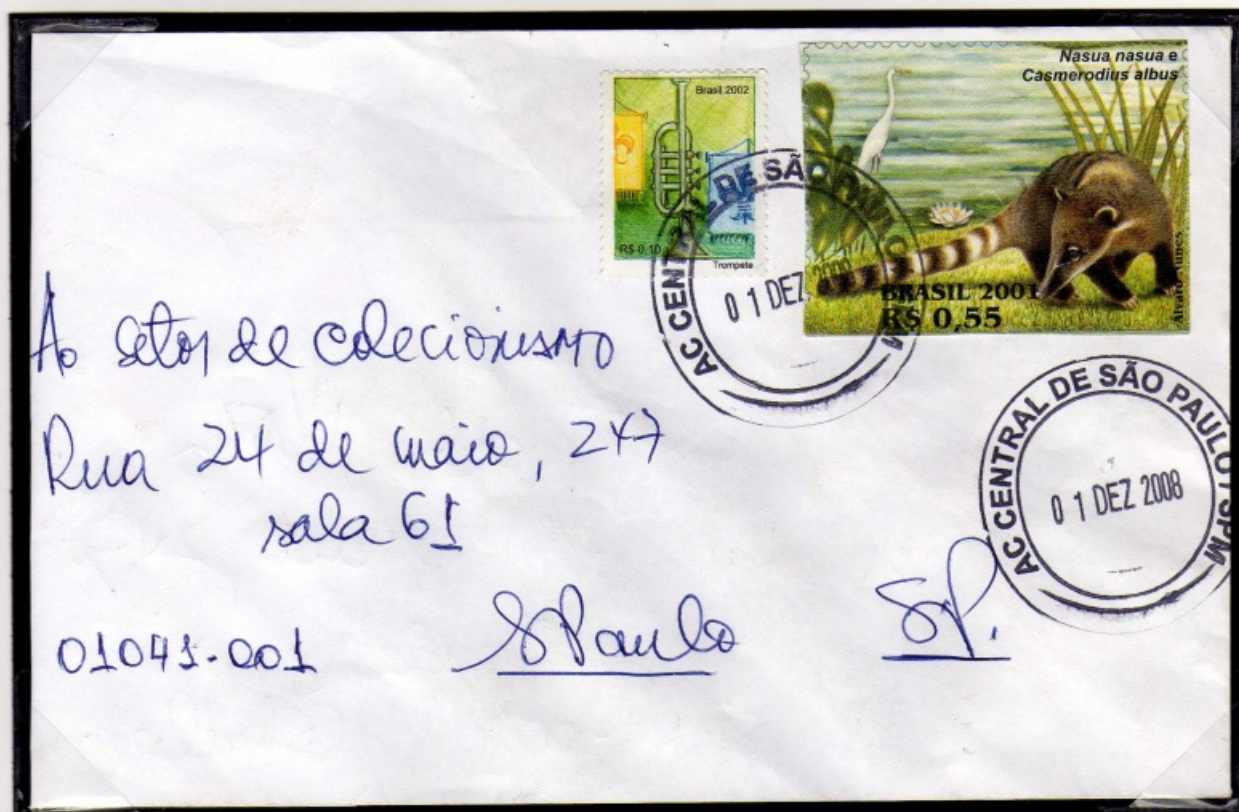 Brasil 2002
R$ 0,10
Trompete
Nasua nasua e
Casmerodius albus
BRASIL 2001
R$ 0,55
Alvaro Nunes
AC CENTRAL DE SÃO PAULO / SPM
01 DEZ 2008
AC CENTRAL DE SÃO PAULO / SPM
01 DEZ 2008
Ao setor de colecionismo
Rua 24 de maio, 247
sala 61
01041-001
SPaulo SP.